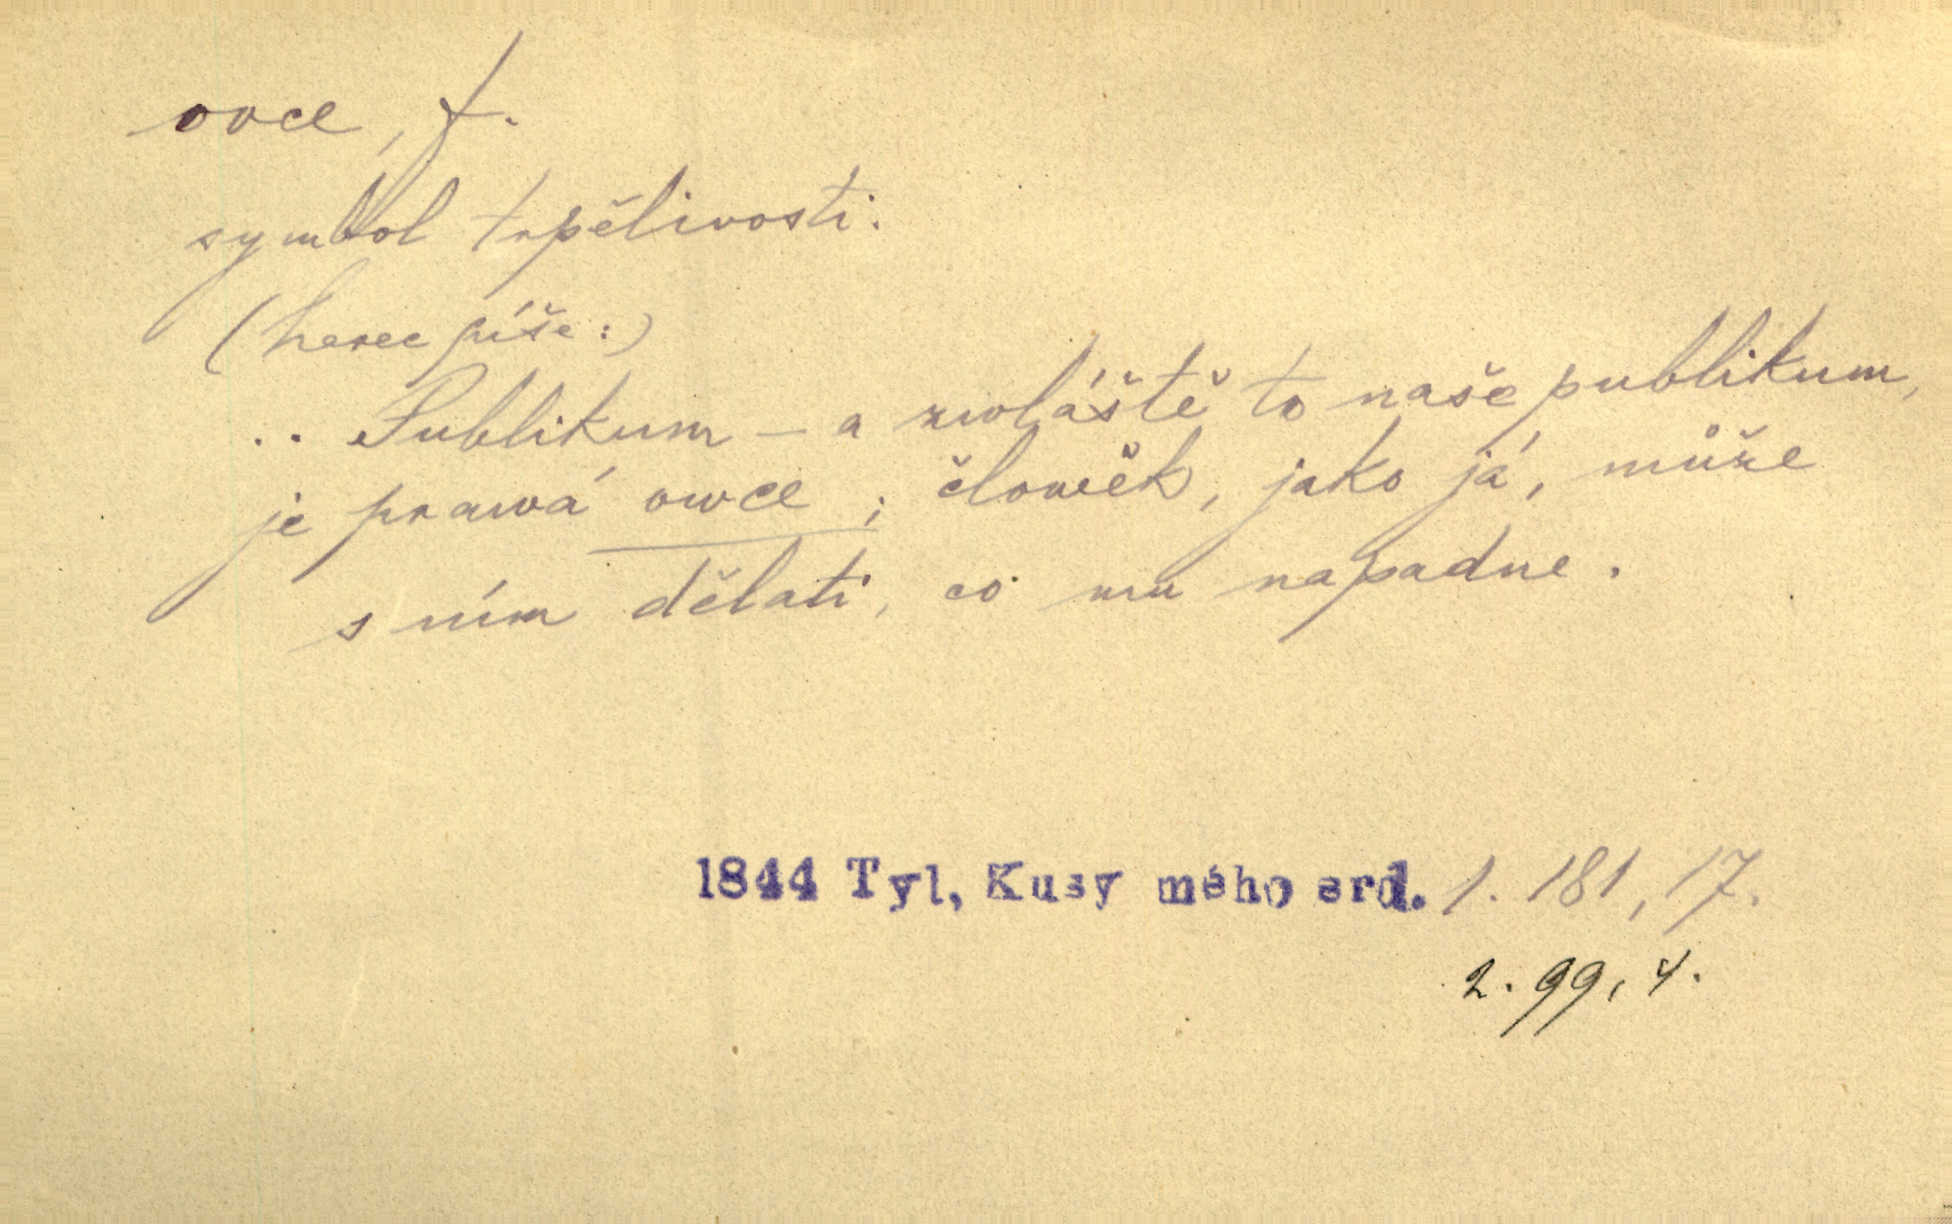 ovce, f.
symbol trpělivosti.
(herec píše:)
.. Publikum – a zwláště to naše publikum,
je prawá owce; člowěk, jako já, může
s ním dělati, co mu napadne.
1844 Tyl, Kusy mého srd. 1. 181, 17.
2. 99, 4.